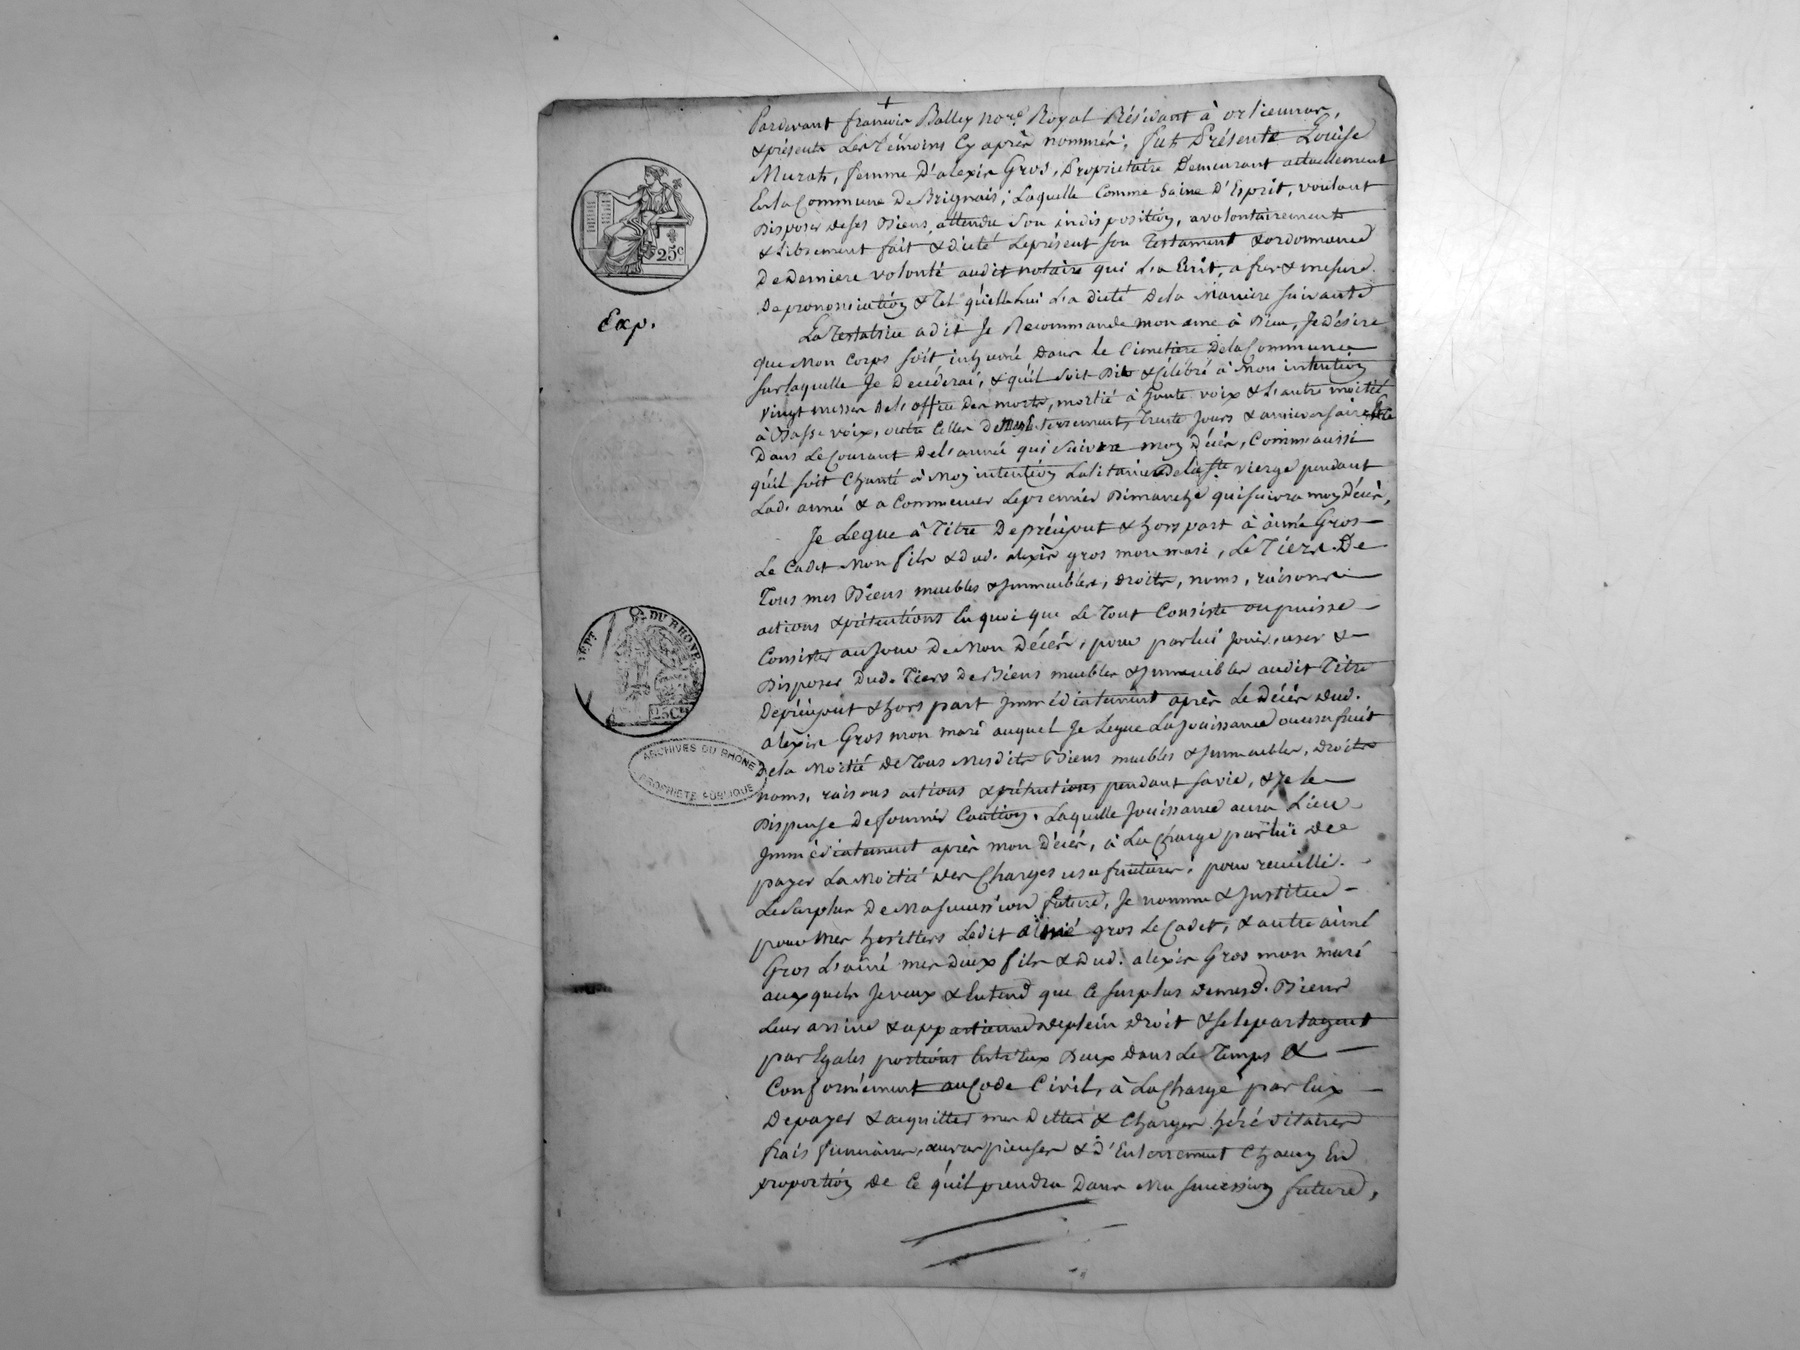 Pardevant françois Balley no.re Royal Résidant à orlienнas,
& présents Les Témoins Cy après nommés, fut Présente Louise
Murat, femme D'alexis Gros, Propriétaire Demeurant actuellement
En la Commune De Brignais; Laquelle Comme Saine D'Esprit, voulant
Disposer de ses Biens, attendu Son indisposition, a volontairement
& Librement fait & dicté Le présent son Testament & ordonnance
De Derniere volonté audit notaire qui L'a Ecrit, a fur & mesure
De prononsiation & Tel qu'elle Lui L'a dicté De la Maniere Suivante
Exp.
La Testatrice a dit Je Recommande mon ame à Dieu, Je désire
que Mon Corps soit inhumé Dans le Cimetiere De la Commune
sur laquelle Je Decéderai, & qu'il soit Dit & Célébré à Mon intention
vingt messes De L'office Des morts, moitié à haute voix & L'autre moitié
à Basse voix, outre Celles De Mon Enterrement, Trente Jours & anniversaire
Dans Le Courant De L'année qui Suivra moy Décès, Comm'aussi
qu'il soit Chanté à Moy intention La litanie De la Ste. vierge pendant
Lad. année & a Commencer Le premier Dimanche qui suivra moy Décès,
Je Legue à Titre De préciput & hors part à aimé Gros
Le Cadet Mon fils & dud. alexis gros mon mari, Le Tiers De
Tous mes Biens meubles & Immeubles, droits, noms, raisons
actions & prétentions En quoi que Le Tout Consiste ou puisse
Consister au Jour De Mon Décès, pour par lui Jouir, user &
Disposer Dud. Tiers De Biens meubles & Immeubles audit Titre
De préciput & hors part Immédiatement après Le Décès dud.
alexis Gros mon mari auquel Je Legue La Jouissance ou usufruit
De la Moitié De Tous Mesdits Biens meubles & Immeubles, droits
noms, raisons actions & prétentions pendant sa vie, & Je le
Dispense De fournir Caution. Laquelle Jouissance aura Lieu
Immédiatement après mon Décès, à La Charge par lui De
payer La Moitié Des Charges usufruitieres. pour recueillir
Le Surplus De Ma succession future, Je nomme & Institue
pour Mes heritiers Ledit aimé gros Le Cadet, & autre aimé
Gros L'ainé mes Deux fils & Dud. alexis Gros mon mari
auxquels Je veux & Entend que Ce surplus De mesd. Biens
Leur arrive & appartienne de plein Droit & se le partagent
par Egales portions Entr'Eux Deux Dans Le Temps &
Conformément au Code Civil, à La Charge par Eux
De payer & acquitter mes Dettes & Charges héréditaires
frais funeraires, œuvres pieuses & d'Enterrement Chacun En
proportion De Ce qu'il prendra Dans Ma succession future,
25c
DEPT. DU RHONE
25C
ARCHIVES DU RHONE
PROPRIETE PUBLIQUE